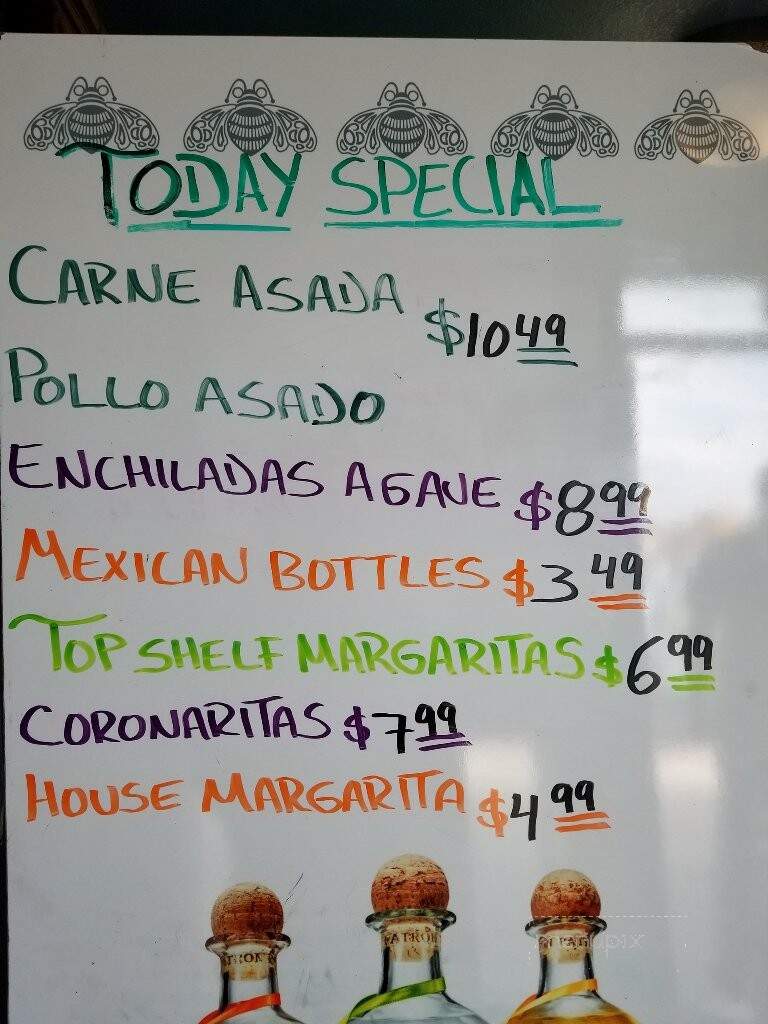 TODAY SPECIAL
CARNE ASADA
$10 49
POLLO ASADO
ENCHILADAS AGAVE $8 99
MEXICAN BOTTLES $3 49
TOP SHELF MARGARITAS $6 99
CORONARITAS $7 99
HOUSE MARGARITA $4 99
PATRON